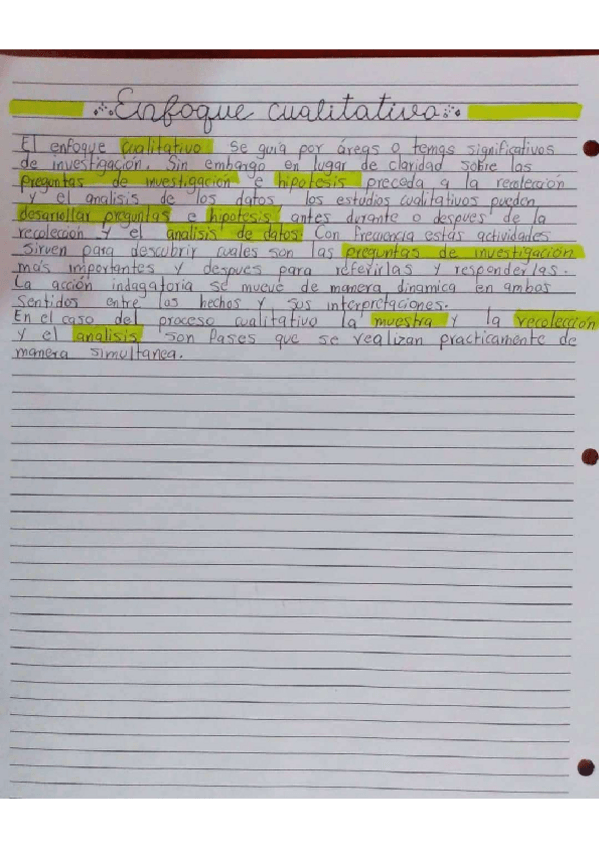 Enfoque cualitativo
El enfoque cualitativo se guia por áreas o temas significativos
de investigación. Sin embargo en lugar de claridad sobre las
preguntas de investigación e hipotesis preceda a la recolección
y el analisis de los datos, los estudios cualitativos pueden
desarrollar preguntas e hipotesis antes durante o despues de la
recolección y el analisis de datos. Con frecuencia estas actividades
sirven para descubrir cuales son las preguntas de investigación
más importantes y despues para referirlas y responderlas.
La acción indagatoria se mueve de manera dinamica en ambos
sentidos entre los hechos y sus interpretaciones.
En el caso del proceso cualitativo la muestra y la recolección
y el analisis son fases que se realizan practicamente de
manera simultanea.